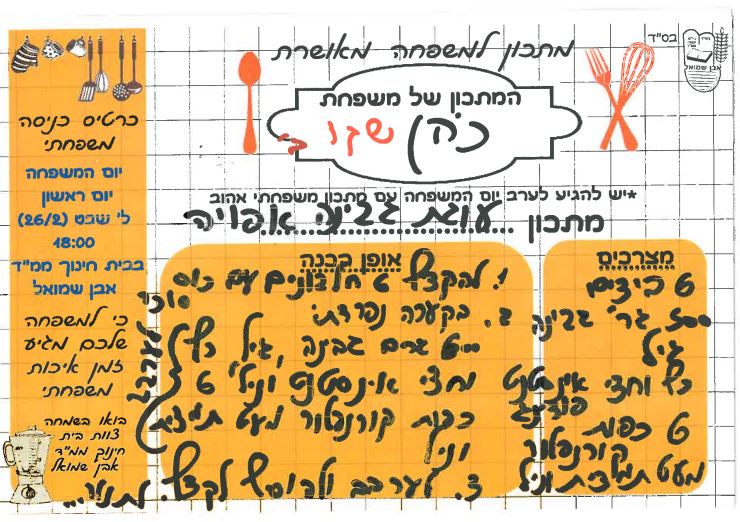 בס"ד
אבן שמואל
מתכון למשפחה מאושרת
המתכון של משפחת
כהן
*יש להגיע לערב יום המשפחה עם מתכון משפחתי אהוב
מתכון עוגת גבינה אפויה
מצרכים
6 ביצים
500 גר' גבינה
גיל
כף וחצי אינסטנט
פודינג
6 כפות
קורנפלור
מעט תמצית וניל
אופן הכנה
1. להקציף 6 חלבונים עם כוס
סוכר
2. בקערה נפרדת:
600 גרם גבינה, גיל
וחצי אינסטנט וניל, 6
כפות קורנפלור מעט תמצית
וניל
לערבב
3. לערבב ולהוסיף לקצף. לתנור...
כרטיס כניסה
משפחתי
יום המשפחה
יום ראשון
ל' שבט (26/2)
18:00
בבית חינוך ממ"ד
אבן שמואל
כי למשפחה
שלכם מגיע
זמן איכות
משפחתי
בואו בשמחה
צוות בית
חינוך ממ"ד
אבן שמואל